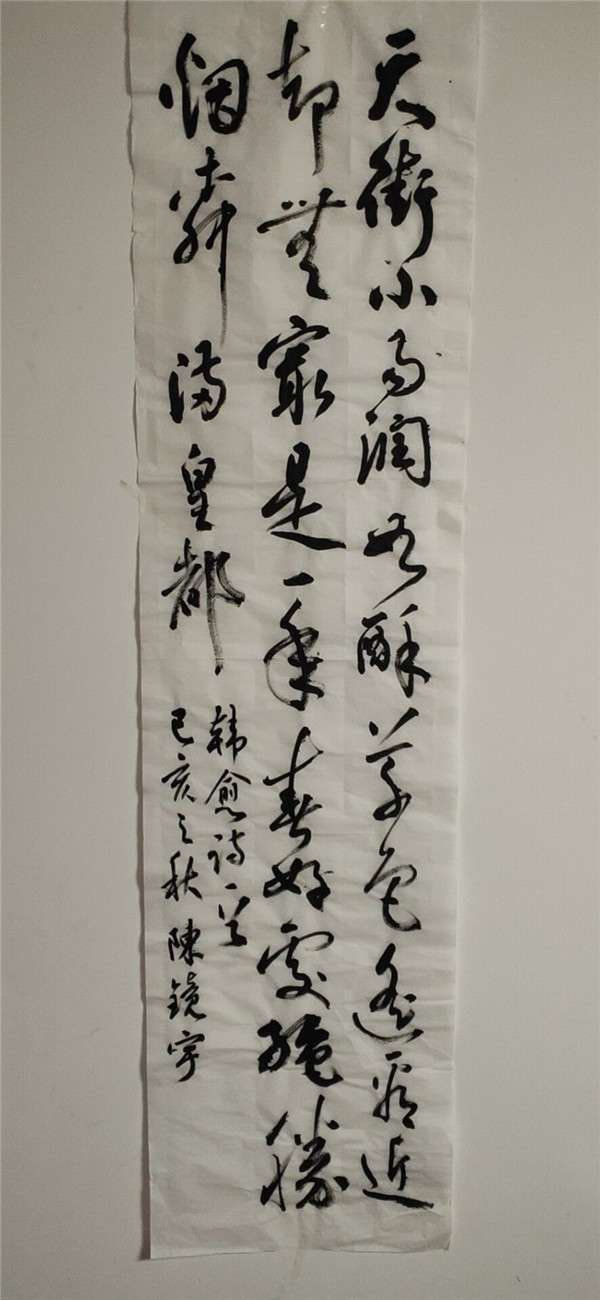 天街小雨润如酥草色遥看近
却無最是一年春好處绝勝
烟柳满皇都
韩愈诗一首
己亥之秋陳鏡宇